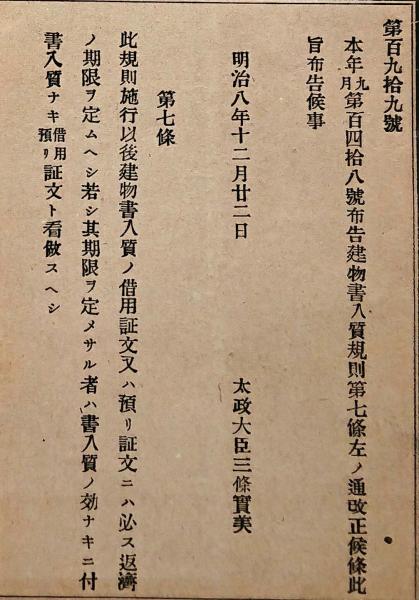 第百九拾九號
本年九月第百四拾八號布告建物書入質規則第七條左ノ通改正候條此
旨布告候事
明治八年十二月廿二日
太政大臣三條實美
第七條
此規則施行以後建物書入質ノ借用証文又ハ預リ証文ニハ必ス返濟
ノ期限ヲ定ムヘシ若シ其期限ヲ定メサル者ハ書入質ノ効ナキニ付
書入質ナキ借用預リ証文ト看做スヘシ